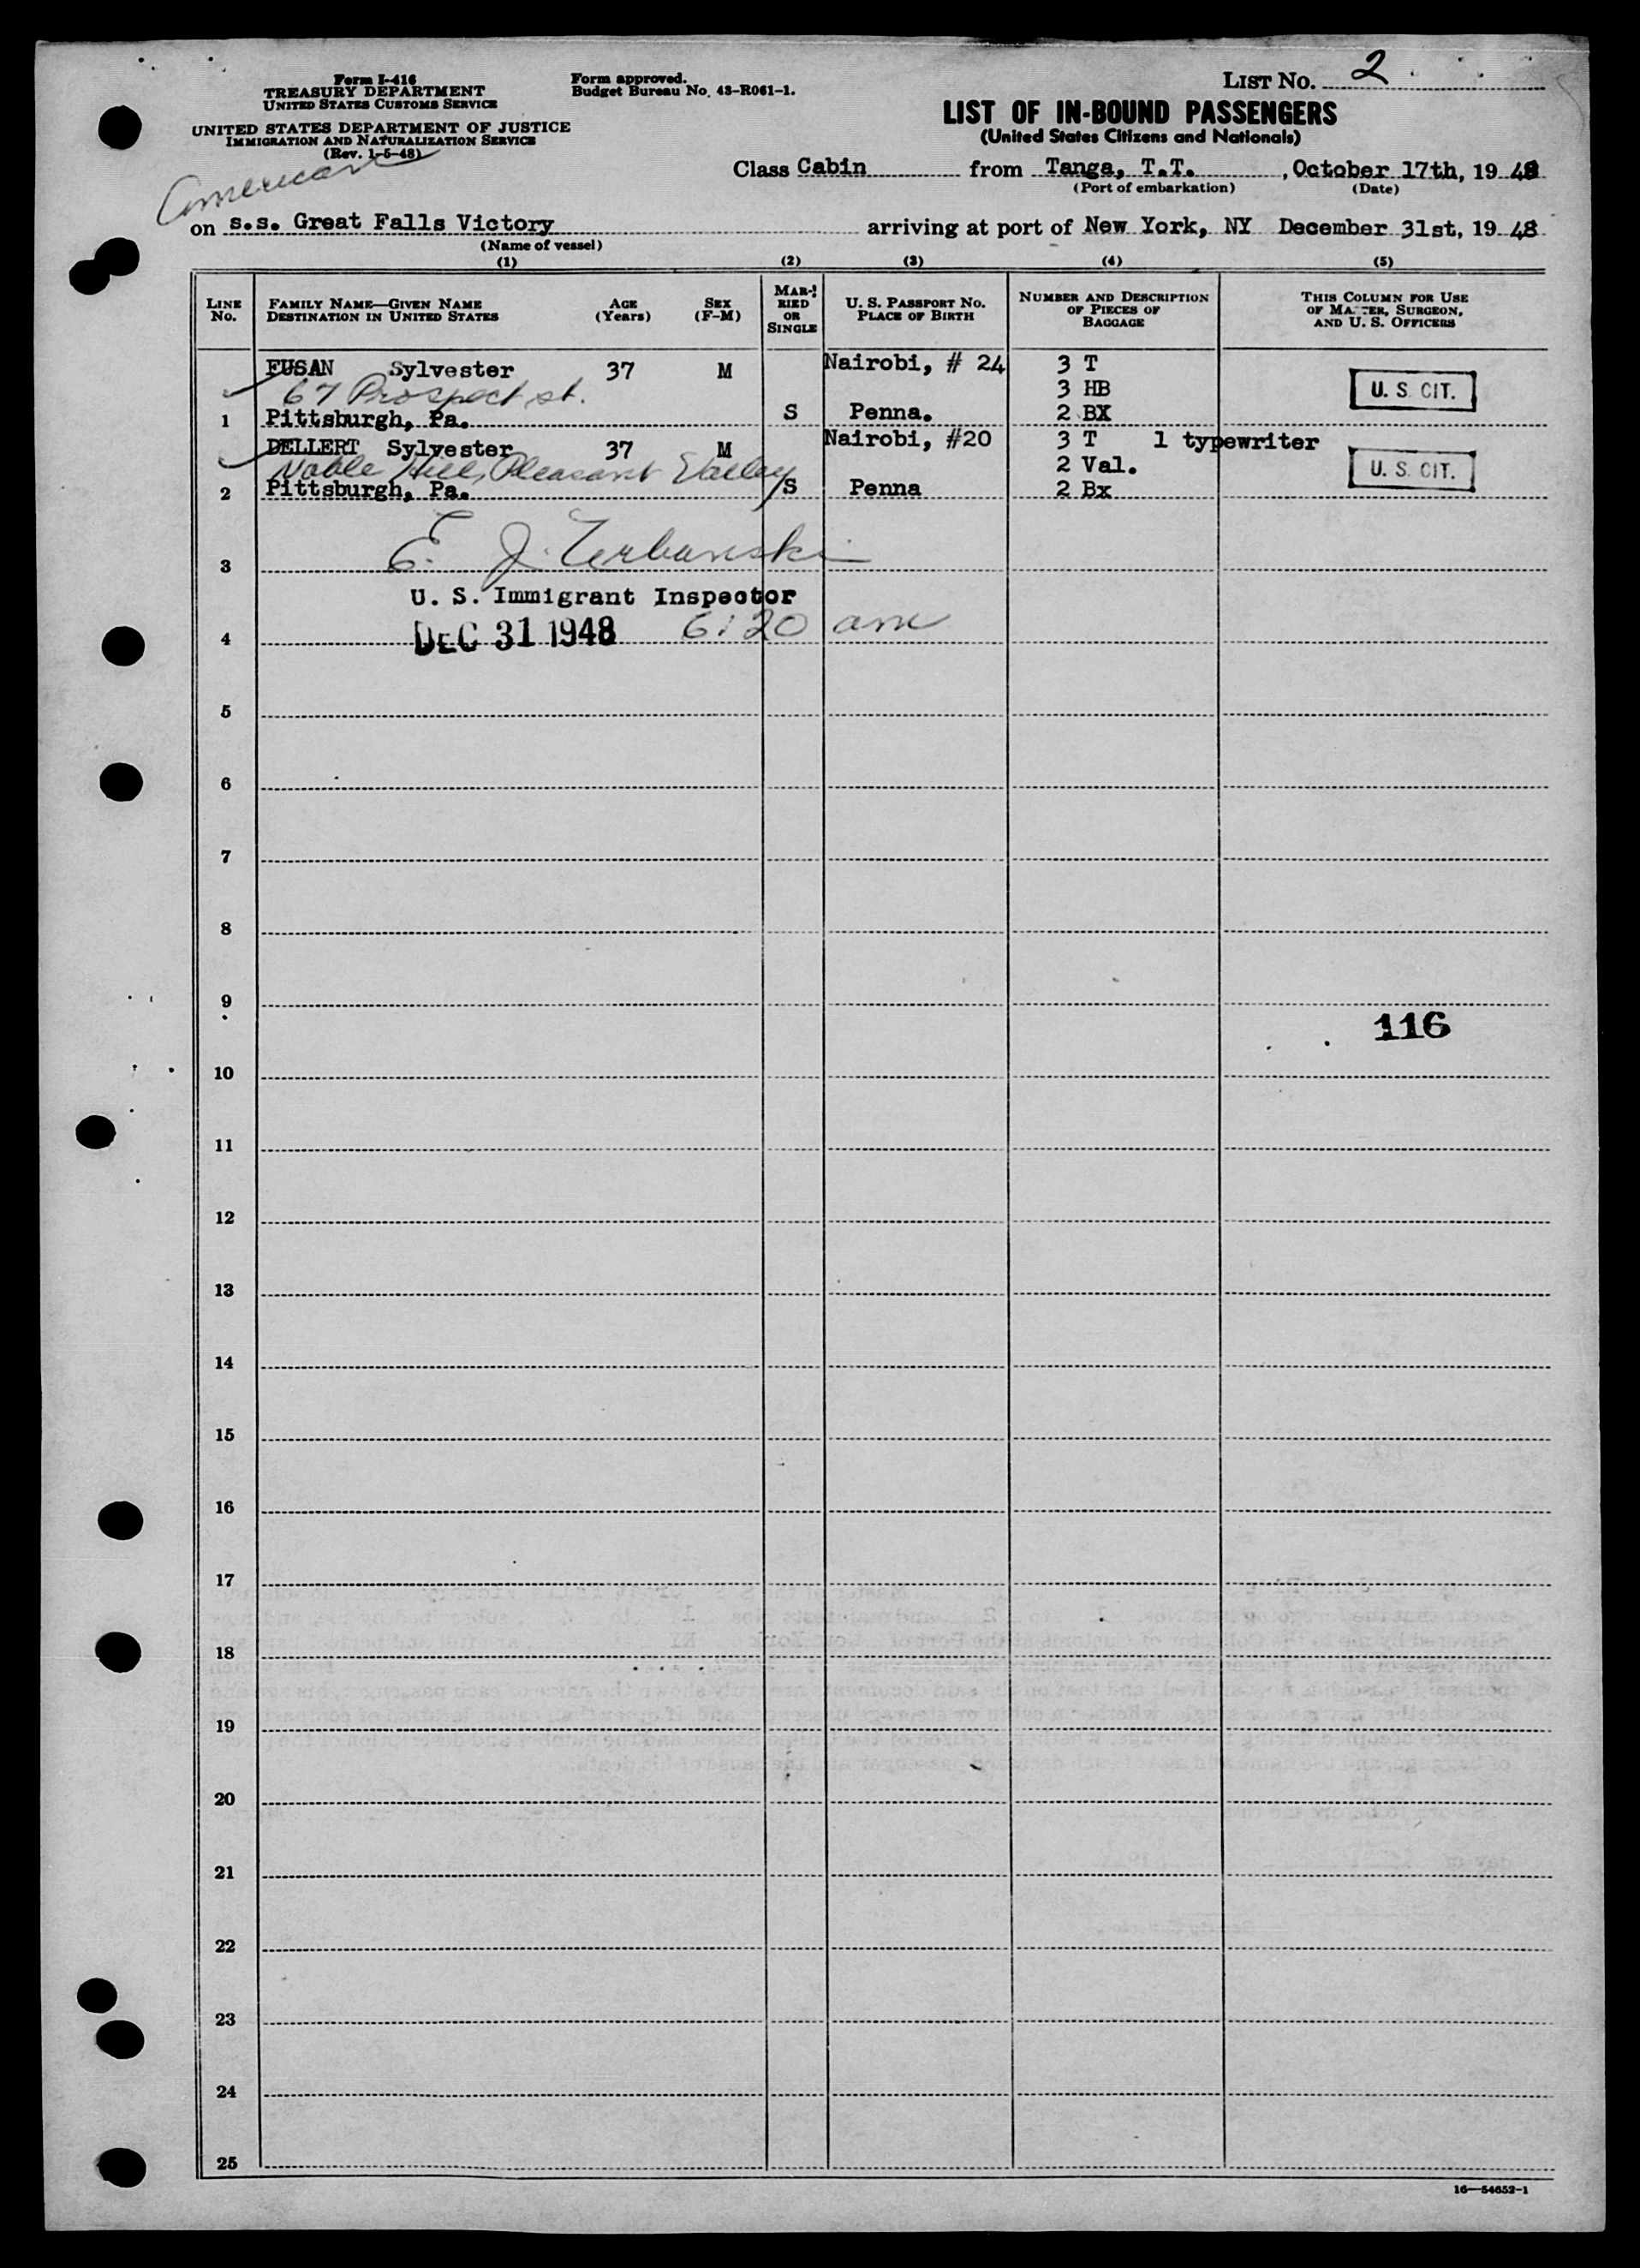 Form I-416
TREASURY DEPARTMENT
UNITED STATES CUSTOMS SERVICE
UNITED STATES DEPARTMENT OF JUSTICE
IMMIGRATION AND NATURALIZATION SERVICE
(Rev. 1-5-48)
American
Form approved.
Budget Bureau No. 43-R061-1.
LIST NO. 2
LIST OF IN-BOUND PASSENGERS
(United States Citizens and Nationals)
Class Cabin from Tanga, T.T., October 17th, 19 48
(Port of embarkation) (Date)
on s.s. Great Falls Victory arriving at port of New York, NY December 31st, 19 48
(Name of vessel)
(1) (2) (3) (4) (5)
LINE No. FAMILY NAME—GIVEN NAME DESTINATION IN UNITED STATES AGE (Years) SEX (F-M) MARRIED OR SINGLE U. S. PASSPORT NO. PLACE OF BIRTH NUMBER AND DESCRIPTION OF PIECES OF BAGGAGE THIS COLUMN FOR USE OF MASTER, SURGEON, AND U. S. OFFICERS
FUSAN Sylvester 37 M Nairobi, # 24 3 T
67 Prospect st. 3 HB U. S. CIT.
1 Pittsburgh, Pa. S Penna. 2 BX
DELLERT Sylvester 37 M Nairobi, #20 3 T 1 typewriter
Noble Hill, Pleasant Valley 2 Val. U. S. CIT.
2 Pittsburgh, Pa. S Penna 2 Bx
3 E. J. Urbanski
U. S. Immigrant Inspector
4 DEC 31 1948 6:20 am
5
6
7
8
9
116
10
11
12
13
14
15
16
17
18
19
20
21
22
23
24
25
16—54652-1